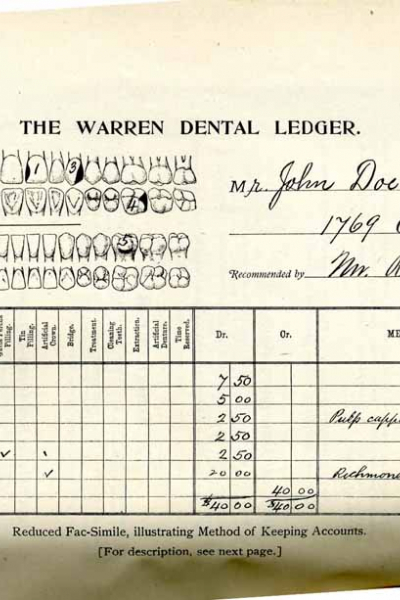 THE WARREN DENTAL LEDGER.
1 3
4
5
Mr. John Doe
1769
Recommended by Mr.
Filling.
Tin Filling.
Artificial Crown.
Bridge.
Treatment.
Cleaning Teeth.
Extraction.
Artificial Denture.
Time Reserved.
Dr. Cr. ME
7 50
5 00
2 50 Pulp capp
2 50
2 50
20 00 Richmon
40 00
$40 00 $40 00
Reduced Fac-Simile, illustrating Method of Keeping Accounts.
[For description, see next page.]